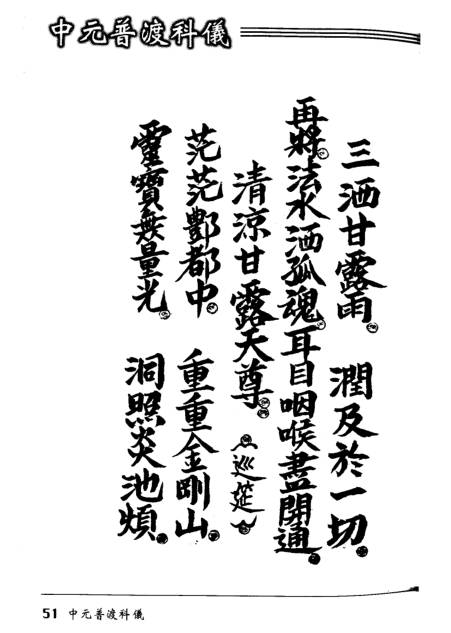 中元普渡科儀
三洒甘露雨。 潤及於一切。
再將法水洒孤魂。耳目咽喉盡開通。
清涼甘露天尊。(巡筵)
茫茫酆都中。 重重金剛山。
靈寶無量光。 洞照炎池煩。
51 中元普渡科儀